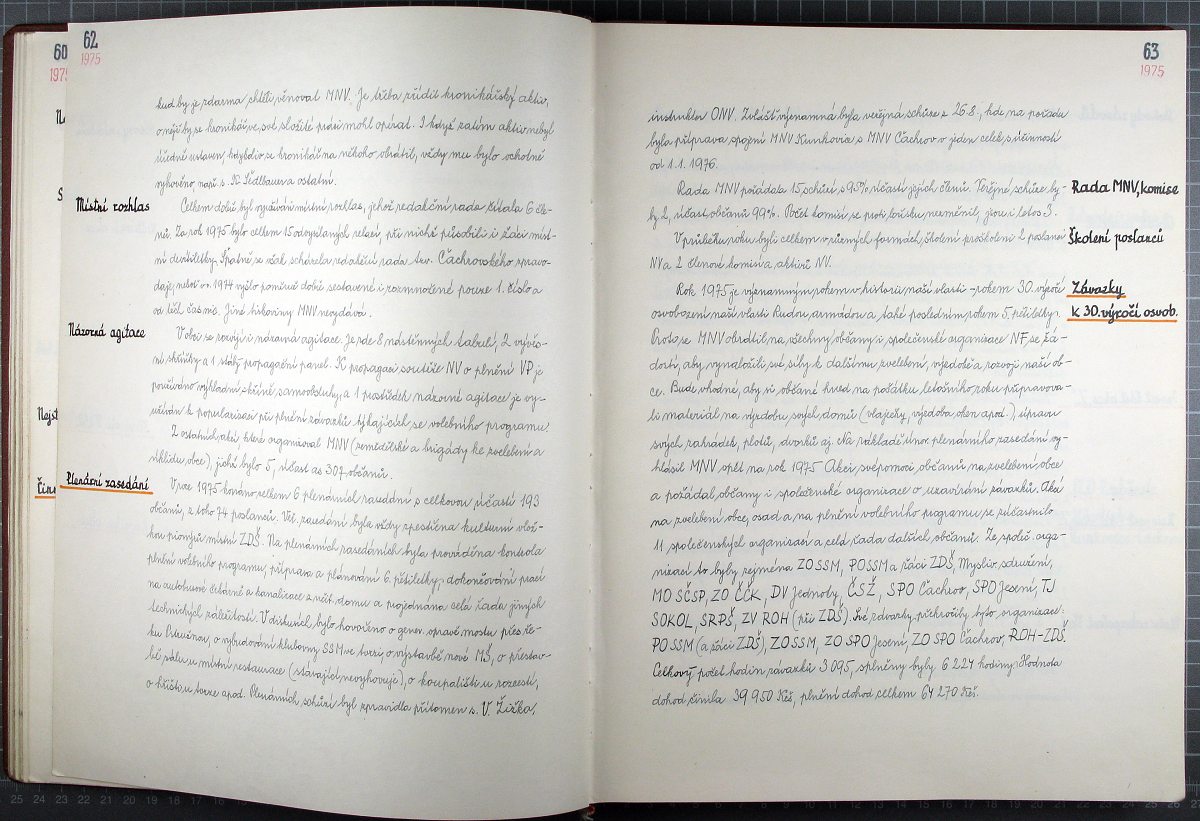 60
1975
62
1975
kud by je zdarma chtěli věnovat MNV. Je třeba zřídit kronikářský aktiv,
o nějž by se kronikář ve své složité práci mohl opírat. I když zatím aktiv nebyl
úředně ustaven, kdykoliv se kronikář na někoho obrátil, vždy mu bylo ochotně
vyhověno, např. s. K. Sedlbauer a ostatní.
Místní rozhlas
Celkem dobře byl využíván místní rozhlas, jehož redakční rada čítala 6 čle-
nů. Za rok 1975 bylo celkem 15 odvysílaných relací, při nichž působili i žáci míst-
ní devítiletky. Špatně se však scházela redakční rada tzv. Čachrovského zpravo-
daje, neboť v r. 1974 vyšlo poměrně dobře sestavené i rozmnožené pouze 1. číslo a
od těch časů nic. Jiné tiskoviny MNV nevydává.
Názorná agitace
V obci se rozvíjí i názorná agitace. Je zde 8 nástěnných tabulí, 2 vývěs-
ní skříňky a 1 stálý propagační panel. K propagaci soutěže NV o plnění VP je
používáno výkladní skříně, samoobsluhy a 1 prostředek názorné agitace je vy-
užíván k popularisaci při plnění závazků týkajících se volebního programu.
Z ostatních akcí, které organizoval MNV (zemědělské a brigády ke zvelebení a
úklidu obce), jichž bylo 5, účast as 307 občanů.
Plenární zasedání
V roce 1975 konáno celkem 6 plenárních zasedání s celkovou účastí 193
občanů, z toho 74 poslanců. Vel. zasedání byla vždy zpestřena kulturní vlož-
kou pionýrů místní ZDŠ. Na plenárních zasedáních byla prováděna kontrola
plnění volebního programu, příprava a plánování 6. pětiletky, dokončování prací
na autobusové čekárně a kanalizace z něst. domu a projednána celá řada jiných
technických záležitostí. V diskusích bylo hovořeno o gener. opravě mostu přes ře-
ku Ostružnou, o vybudování klubovny SSM ve tvrzi, o výstavbě nové MŠ, o přestav-
bě sálu u místní restaurace (stávající nevyhovuje), o koupališti u rozcestí,
o hřišti u tvrze apod. Plenárních schůzí byl zpravidla přítomen s. V. Žižka,
63
1975
instruktor ONV. Zvlášť významná byla veřejná schůze z 26.8., kde na pořadu
byla příprava spojení MNV Kunkovice s MNV Čachrov v jeden celek s účinností
od 1.1.1976.
Rada MNV, komise
Rada MNV pořádala 15 schůzí s 95% účastí jejích členů. Veřejné schůze by-
ly 2, účast občanů 99%. Počet komisí se proti loňsku nezměnil, jsou i letos 3.
Školení poslanců
V průběhu roku byli celkem v různých formách školení proškoleni 2 poslanci
NV a 2 členové komisí a aktivů NV.
Závazky
k 30. výročí osvob.
Rok 1975 je významným rokem v historii naší vlasti - rokem 30. výročí
osvobození naší vlasti Rudou armádou a také posledním rokem 5. pětiletky.
Proto se MNV obrátil na všechny občany i společenské organizace NF se žá-
dostí, aby vynaložili své síly k dalšímu zvelebení, výzdobě a rozvoji naší ob-
ce. Bude vhodné, aby si občané hned na počátku letošního roku připravova-
li materiál na výzdobu svých domů (vlaječky, výzdoba oken apod.), úpravu
svých zahrádek, plotů, dvorků aj. Na základě únor. plenárního zasedání vy-
hlásil MNV opět na rok 1975 Akci svépomocí občanů na zvelebení obce
a požádal občany i společenské organizace o uzavírání závazků. Akcí
na zvelebení obce, osad a na plnění volebního programu se zúčastnilo
11 společenských organizací a celá řada dalších občanů. Ze společ. orga-
nizací to byly zejména ZO SSM, PO SSM a žáci ZDŠ, Mysliv. sdružení,
MO SČSP, ZO ČČK, DV Jednoty, ČSŽ, SPO Čachrov, SPO Jesení, TJ
SOKOL, SRPŠ, ZV ROH (při ZDŠ). Své závazky překročily tyto organizace:
PO SSM (a žáci ZDŠ), ZO SSM, ZO SPO Jesení, ZO SPO Čachrov, ROH-ZDŠ.
Celkový počet hodin závazků 3 095, splněny byly 6 227 hodiny. Hodnota
dohod činila 39 950 Kčs, plnění dohod celkem 64 270 Kčs.